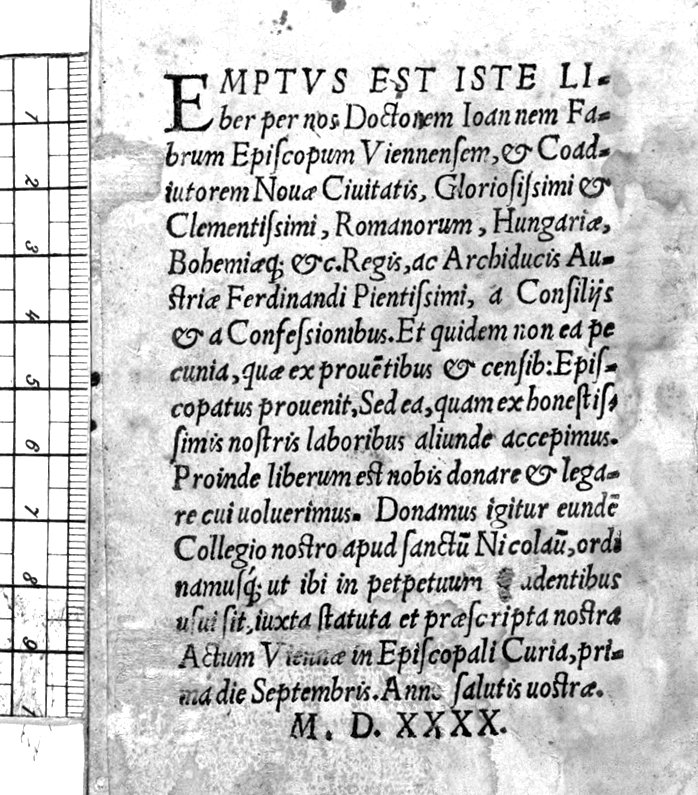 EMPTVS EST ISTE LI-
ber per nos Doctorem Ioannem Fa-
brum Epiſcopum Viennenſem, & Coad-
iutorem Nouæ Ciuitatis, Glorioſiſsimi &
Clementiſsimi, Romanorum, Hungariæ,
Bohemiæq; &c. Regis, ac Archiducis Au-
striæ Ferdinandi Pientiſsimi, a Conſilijs
& a Confeſsionibus. Et quidem non ea pe
cunia, quæ ex prouētibus & cenſib: Epiſ-
copatus prouenit, Sed ea, quam ex honeſtiſ-
ſimis noſtris laboribus aliunde accepimus.
Proinde liberum est nobis donare & lega-
re cui uoluerimus. Donamus igitur eundē
Collegio noſtro apud ſanctū Nicolaū, ordi
namuſq́; ut ibi in petpetuum ſtudentibus
uſui ſit, iuxta ſtatuta et præſcripta noſtra
Actum Viennæ in Epiſcopali Curia, pri-
ma die Septembris. Anno ſalutis uostræ.
M. D. XXXX.
1
2
3
4
5
6
7
8
9